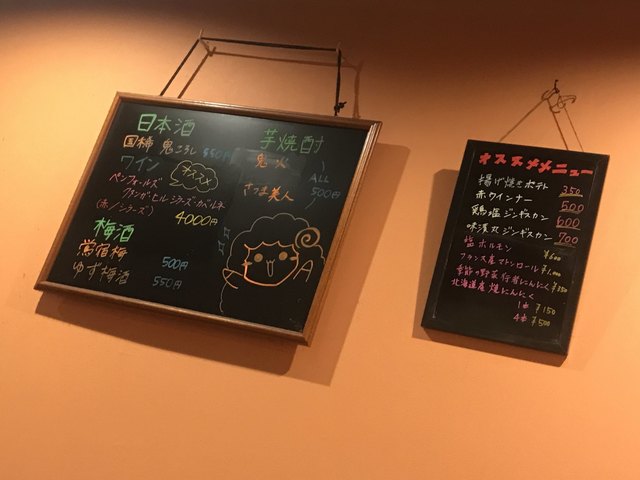 日本酒
国稀 鬼ころし 550円
ワイン
オススメ
ペンフォールズ
クナンガ・ヒル シラーズ・カベルネ
(赤/シラーズ) 4000円
梅酒
鴬宿梅 500円
ゆず梅酒 550円
芋焼酎
鬼火
さつま美人
ALL
500円
オススメメニュー
揚げ焼きポテト 350
赤ウインナー 500
鶏塩ジンギスカン 600
味漬丸ジンギスカン 700
塩ホルモン ¥600
フランス産マトンロール ¥1,000
季節の野菜 行者にんにく ¥350
北海道産 焼にんにく
1ヶ ¥150
4ヶ ¥500